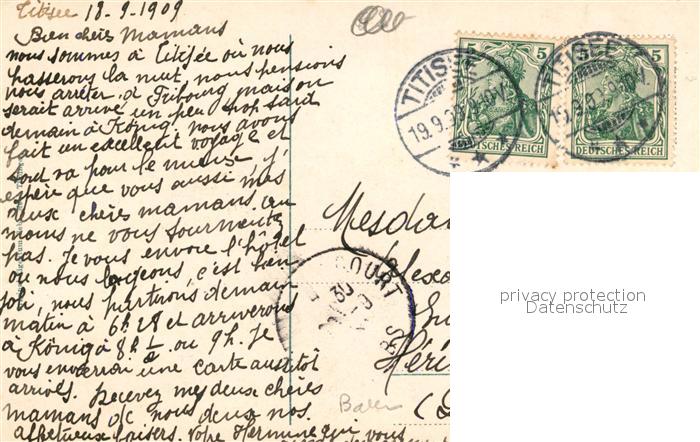 Titisee 18-9-1909
Bien chères Mamans
nous sommes à Titisée où nous
passerons la nuit, nous pensions
nous arrêter à Fribourg mais on
serait arrivé un peu trop tard
demain à König, nous avons
fait un excellent voyage et
tout va pour le mieux, j'
espère que vous aussi mes
deux chères mamans, au
moins ne vous tourmentez
pas. Je vous envoie l'hôtel
où nous logeons, c'est bien
joli, nous partirons demain
matin à 6h28 et arriverons
à König à 8h½ ou 9h. Je
vous enverrai une carte aussitôt
arrivés. Recevez mes deux chères
mamans de nous deux nos
affectueux baisers. Votre Hermine qui vous
5 5
DEUTSCHES REICH
5
DEUTSCHES REICH
TITISEE
19.9.
TITISEE
19.9.
Mesda
COURT
30
Héri
Baden
privacy protection
Datenschutz